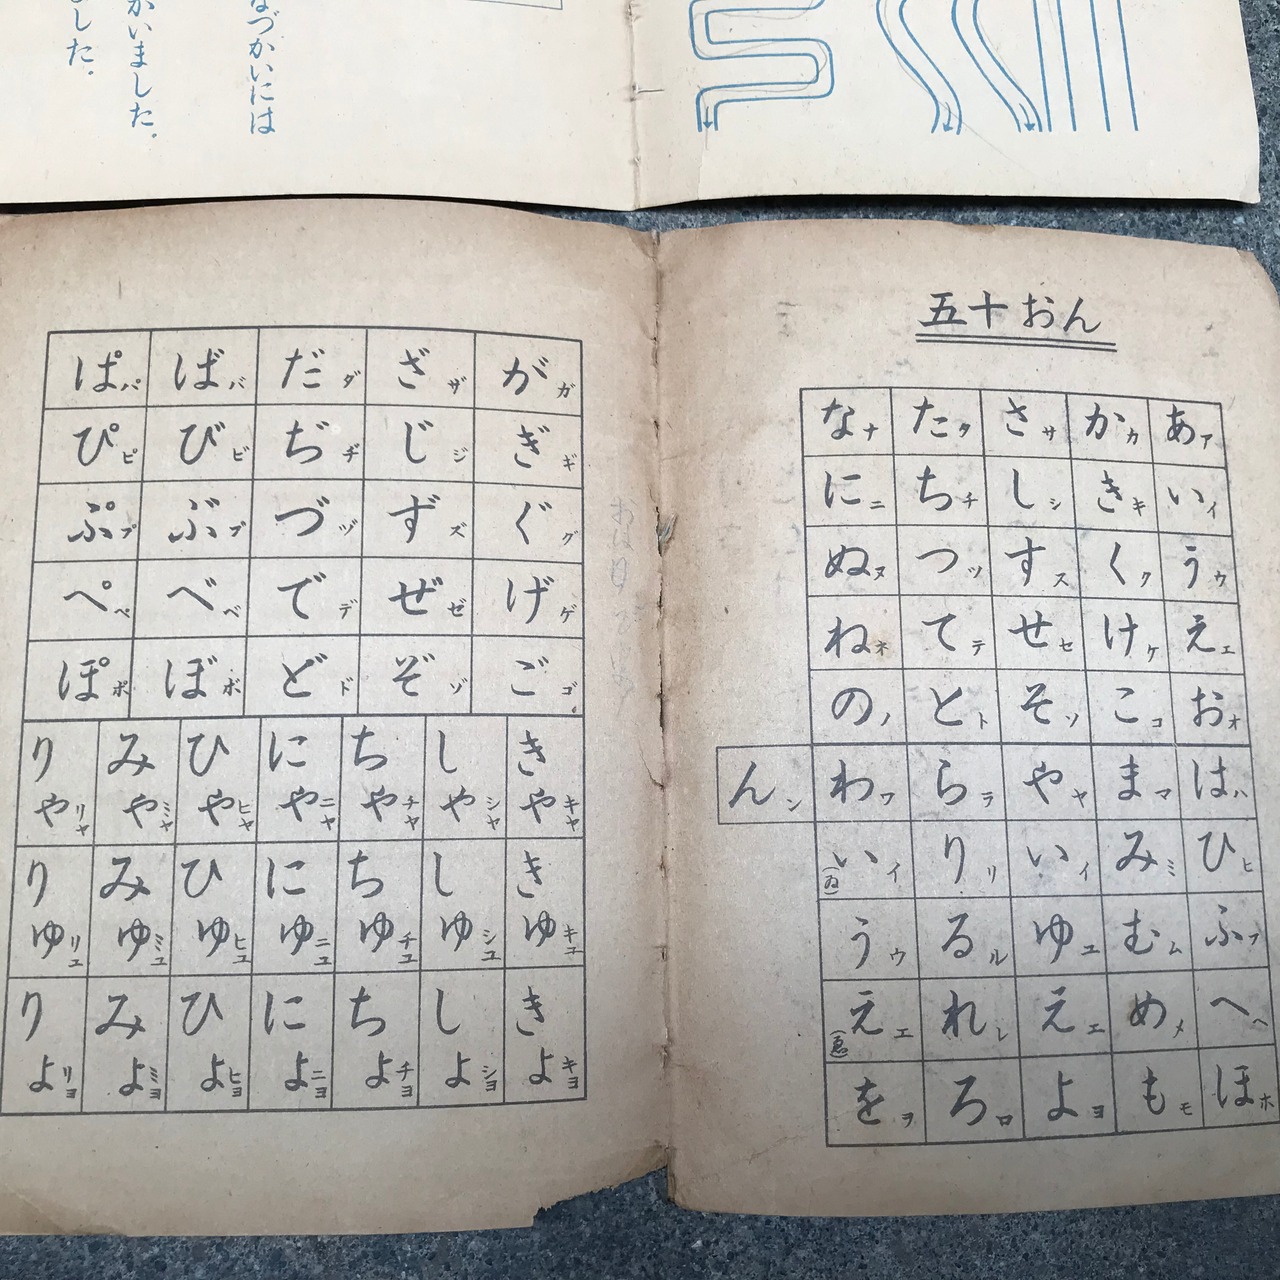 なづかいには
がいました。
した。
五十おん
あア いイ うウ えエ おオ
かカ きキ くク けケ こコ
さサ しシ すス せセ そソ
たタ ちチ つツ てテ とト
なナ にニ ぬヌ ねネ のノ
はハ ひヒ ふフ へヘ ほホ
まマ みミ むム めメ もモ
やヤ いイ ゆユ えエ よヨ
らラ りリ るル れレ ろロ
わワ いイ(ゐ) うウ えエ(ゑ) をヲ
んン
がガ ぎギ ぐグ げゲ ごゴ
ざザ じジ ずズ ぜゼ ぞゾ
だダ ぢヂ づヅ でデ どド
ばバ びビ ぶブ べベ ぼボ
ぱパ ぴピ ぷプ ぺペ ぽポ
きやキヤ きゆキユ きよキヨ
しやシヤ しゆシユ しよシヨ
ちやチヤ ちゆチユ ちよチヨ
にやニヤ にゆニユ によニヨ
ひやヒヤ ひゆヒユ ひよヒヨ
みやミヤ みゆミユ みよミヨ
りやリヤ りゆリユ りよリヨ